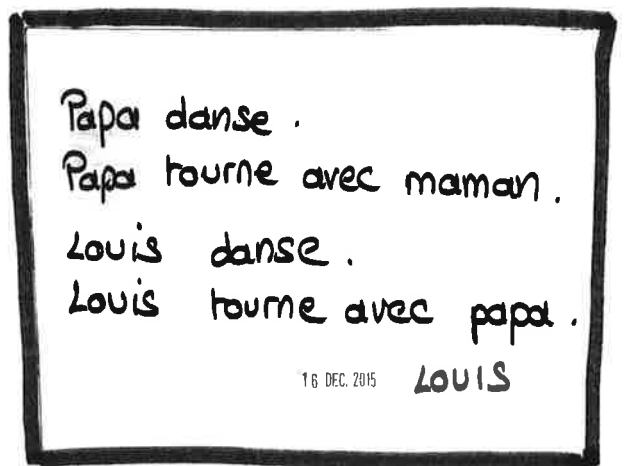 Papa danse.
Papa tourne avec maman.
Louis danse.
Louis tourne avec papa.
16 DEC. 2015 LOUIS